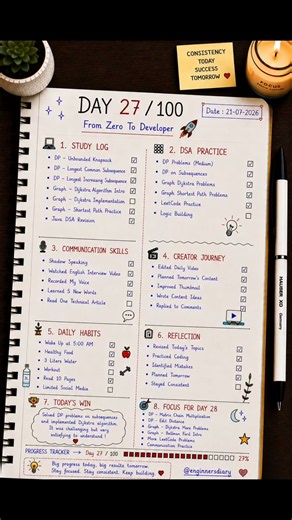 CONSISTENCY
TODAY
SUCCESS
TOMORROW
DAY 27 / 100
From Zero To Developer
Date : 21-07-2026
1. STUDY LOG
DP - Unbounded Knapsack
DP - Longest Common Subsequence
DP - Longest Increasing Subsequence
Graph - Dijkstra Algorithm Intro
Graph - Dijkstra Implementation
Graph - Shortest Path Practice
Java DSA Revision
2. DSA PRACTICE
DP Problems (Medium)
DP on Subsequences
Graph Dijkstra Problems
Graph Shortest Path Problems
LeetCode Practice
Logic Building
3. COMMUNICATION SKILLS
Shadow Speaking
Watched English Interview Video
Recorded My Voice
Learned 5 New Words
Read One Technical Article
4. CREATOR JOURNEY
Edited Daily Video
Planned Tomorrow's Content
Improved Thumbnail
Wrote Content Ideas
Replied to Comments
5. DAILY HABITS
Wake Up at 5:00 AM
Healthy Food
3 Liters Water
Workout
Read 10 Pages
Limited Social Media
6. REFLECTION
Revised Today's Topics
Practiced Coding
Identified Mistakes
Planned Tomorrow
Stayed Consistent
7. TODAY'S WIN
Solved DP problems on subsequences
and implemented Dijkstra algorithm.
It was challenging but very
satisfying to understand !
8. FOCUS FOR DAY 28
DP - Matrix Chain Multiplication
DP - Edit Distance
Graph - Dijkstra More Problems
Graph - Bellman Ford Intro
More LeetCode Problems
Communication Practice
PROGRESS TRACKER → Day 27 / 100
27%
Big progress today, big results tomorrow.
Stay focused. Stay consistent. Keep building.
@enginnersdiary
HAUSER XO
Germany